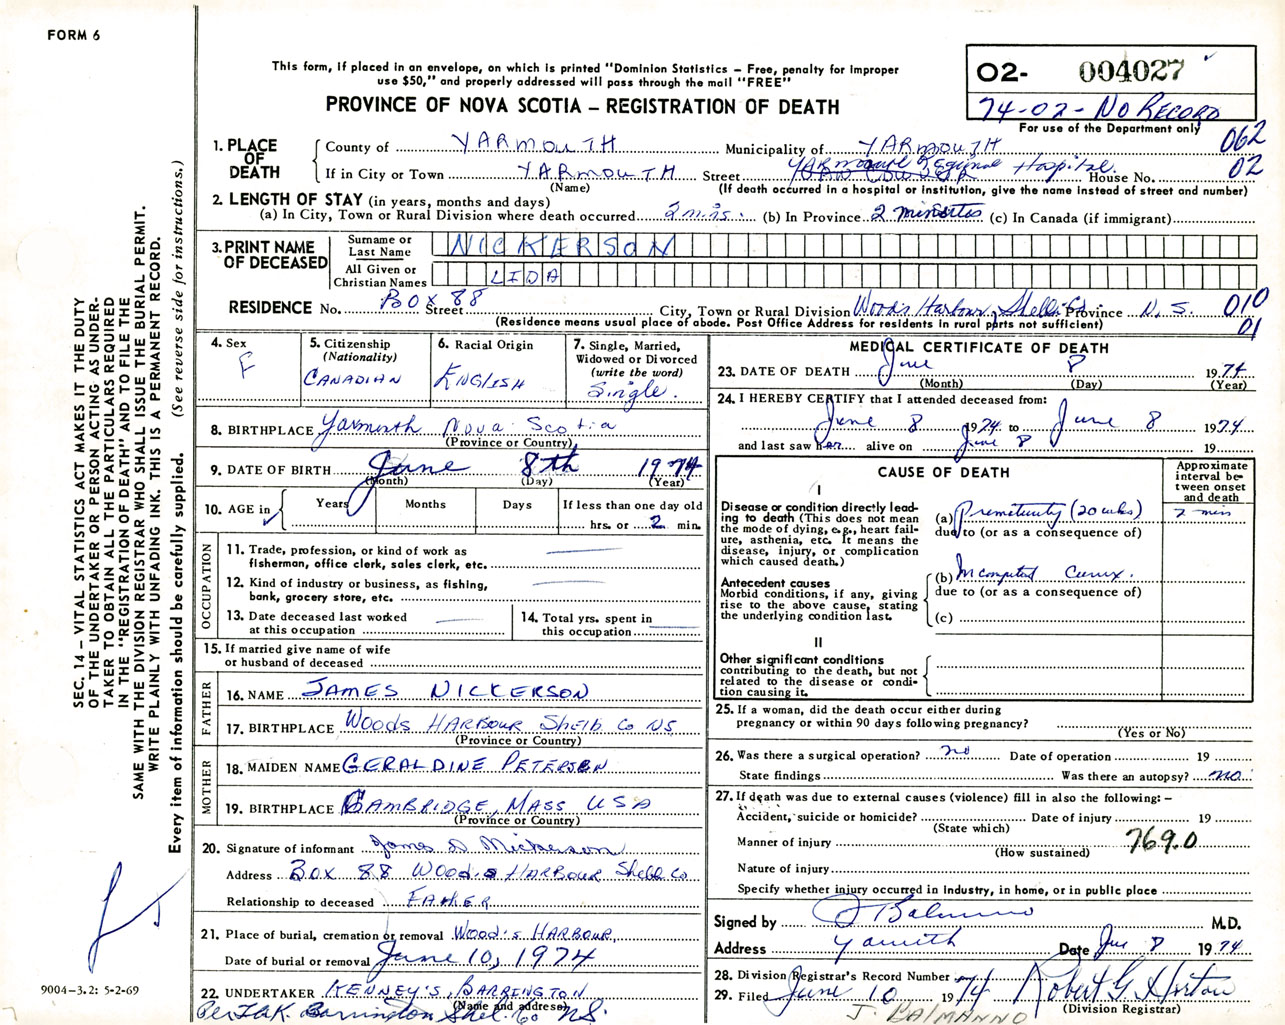 FORM 6
This form, if placed in an envelope, on which is printed "Dominion Statistics – Free, penalty for improper
use $50," and properly addressed will pass through the mail "FREE"
PROVINCE OF NOVA SCOTIA – REGISTRATION OF DEATH
02- 004027
74-02- NO RECORD
For use of the Department only
062
02
1. PLACE OF DEATH
County of YARMOUTH Municipality of YARMOUTH
If in City or Town YARMOUTH Street Yarmouth Regional Hospital House No.
(Name) (If death occurred in a hospital or institution, give the name instead of street and number)
2. LENGTH OF STAY (in years, months and days)
(a) In City, Town or Rural Division where death occurred 2 mins. (b) In Province 2 minutes (c) In Canada (if immigrant)
3. PRINT NAME OF DECEASED
Surname or Last Name NICKERSON
All Given or Christian Names LIDA
RESIDENCE No. BOX 88 Street City, Town or Rural Division Woods Harbour, Shelb. Co. Province N.S. 010
01
(Residence means usual place of abode. Post Office Address for residents in rural parts not sufficient)
4. Sex
F
5. Citizenship
(Nationality)
CANADIAN
6. Racial Origin
ENGLISH
7. Single, Married,
Widowed or Divorced
(write the word)
Single.
8. BIRTHPLACE Yarmouth Nova Scotia
(Province or Country)
9. DATE OF BIRTH June 8th 1974
(Month) (Day) (Year)
10. AGE in Years Months Days If less than one day old
hrs. or 2 min.
OCCUPATION
11. Trade, profession, or kind of work as
fisherman, office clerk, sales clerk, etc.
12. Kind of industry or business, as fishing,
bank, grocery store, etc.
13. Date deceased last worked
at this occupation
14. Total yrs. spent in
this occupation
15. If married give name of wife
or husband of deceased
FATHER
16. NAME JAMES NICKERSON
17. BIRTHPLACE WOODS HARBOUR SHELB CO NS
(Province or Country)
MOTHER
18. MAIDEN NAME GERALDINE PETERSEN
19. BIRTHPLACE CAMBRIDGE, MASS USA
(Province or Country)
20. Signature of informant James D Nickerson
Address BOX 88 WOODS HARBOUR Shelb Co
Relationship to deceased FATHER
21. Place of burial, cremation or removal WOOD'S HARBOUR,
Date of burial or removal June 10, 1974
22. UNDERTAKER KENNEY'S, BARRINGTON
(Name and address)
Per Barrington Shel. Co N.S.
MEDICAL CERTIFICATE OF DEATH
23. DATE OF DEATH June 8 1974
(Month) (Day) (Year)
24. I HEREBY CERTIFY that I attended deceased from:
June 8 1974 to June 8 1974
and last saw her alive on June 8 19
CAUSE OF DEATH
Approximate
interval be-
tween onset
and death
I
Disease or condition directly lead-
ing to death (This does not mean
the mode of dying, e.g., heart fail-
ure, asthenia, etc. It means the
disease, injury, or complication
which caused death.)
(a) Prematurity (20 wks) 2 min
due to (or as a consequence of)
Antecedent causes
Morbid conditions, if any, giving
rise to the above cause, stating
the underlying condition last.
(b) Incompetent Cervix.
due to (or as a consequence of)
(c)
II
Other significant conditions
contributing to the death, but not
related to the disease or condi-
tion causing it.
25. If a woman, did the death occur either during
pregnancy or within 90 days following pregnancy?
(Yes or No)
26. Was there a surgical operation? no Date of operation 19
State findings Was there an autopsy? no
27. If death was due to external causes (violence) fill in also the following: –
Accident, suicide or homicide? Date of injury 19
(State which)
Manner of injury 769.0
(How sustained)
Nature of injury
Specify whether injury occurred in Industry, in home, or in public place
Signed by J Balmanno M.D.
Address Yarmouth Date June 8 1974
28. Division Registrar's Record Number
29. Filed June 10 1974 Robert G. Horton
(Division Registrar)
J. BALMANNO
SEC. 14 – VITAL STATISTICS ACT MAKES IT THE DUTY
OF THE UNDERTAKER OR PERSON ACTING AS UNDER-
TAKER TO OBTAIN ALL THE PARTICULARS REQUIRED
IN THE "REGISTRATION OF DEATH" AND TO FILE THE
SAME WITH THE DIVISION REGISTRAR WHO SHALL ISSUE THE BURIAL PERMIT.
WRITE PLAINLY WITH UNFADING INK. THIS IS A PERMANENT RECORD.
Every item of information should be carefully supplied. (See reverse side for instructions.)
9004-3.2: 5-2-69